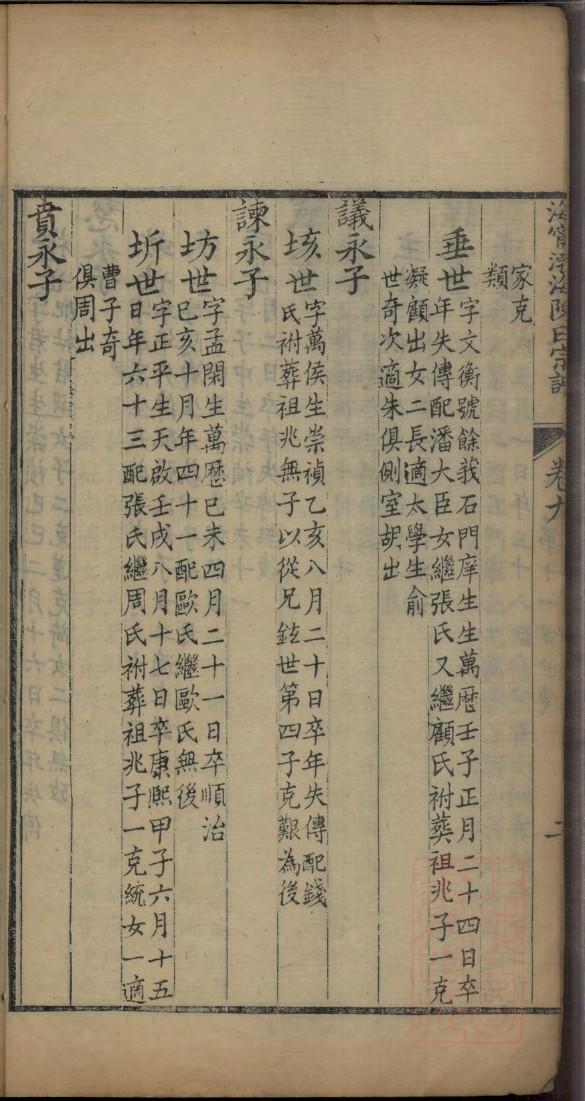 海寧渤海陳氏宗譜
卷九
二
家克
類
垂世
字文衡號餘我石門庠生生萬歷壬子正月二十四日卒
年失傳配潘大臣女繼張氏又繼顧氏祔葬祖兆子一克
凝顧出女二長適太學生俞
世奇次適朱俱側室胡出
議永子
垓世
字萬侯生崇禎乙亥八月二十日卒年失傳配錢
氏祔葬祖兆無子以從兄鉉世第四子克艱為後
諫永子
坊世
字孟閑生萬歷己未四月二十一日卒順治
己亥十月年四十一配歐氏繼歐氏無後
圻世
字正平生天啟壬戌八月十七日卒康熙甲子六月十五
日年六十三配張氏繼周氏祔葬祖兆子一克統女一適
曹子奇
俱周出
賁永子